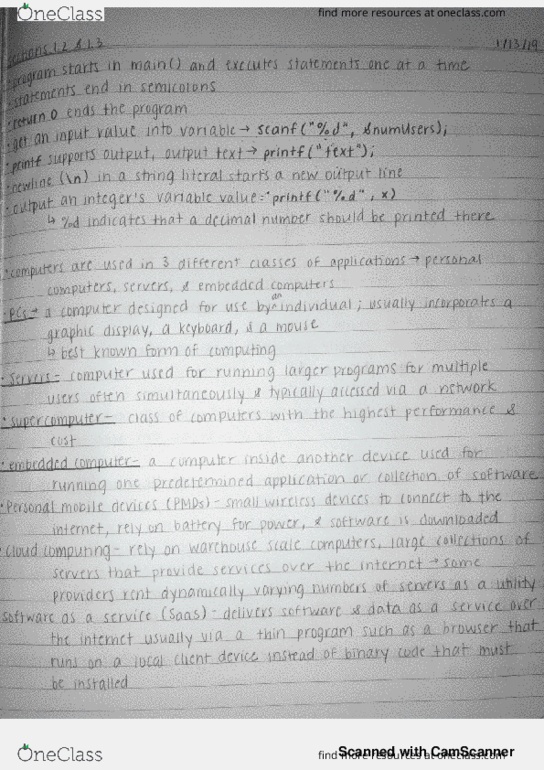 OneClass
find more resources at oneclass.com
Sections 1.2 & 1.3 1/13/19
• program starts in main() and executes statements one at a time
• statements end in semicolons
• return 0 ends the program
• get an input value into variable → scanf("%d", &numUsers);
• printf supports output, output text → printf("text");
• newline (\n) in a string literal starts a new output line
• output an integer's variable value: printf("%d", x)
↳ %d indicates that a decimal number should be printed there
• computers are used in 3 different classes of applications → personal
computers, servers, & embedded computers
• PCs → a computer designed for use by an individual; usually incorporates a
graphic display, a keyboard, & a mouse
↳ best known form of computing
• servers - computer used for running larger programs for multiple
users often simultaneously & typically accessed via a network
• supercomputer - class of computers with the highest performance &
cost
• embedded computer - a computer inside another device used for
running one predetermined application or collection of software
• Personal mobile devices (PMDs) - small wireless devices to connect to the
internet, rely on battery for power, & software is downloaded
• cloud computing - rely on warehouse scale computers, large collections of
servers that provide services over the internet → some
providers rent dynamically varying numbers of servers as a utility
Software as a service (SaaS) - delivers software & data as a service over
the internet usually via a thin program such as a browser that
runs on a local client device instead of binary code that must
be installed
OneClass
find more resources at oneclass.com
Scanned with CamScanner